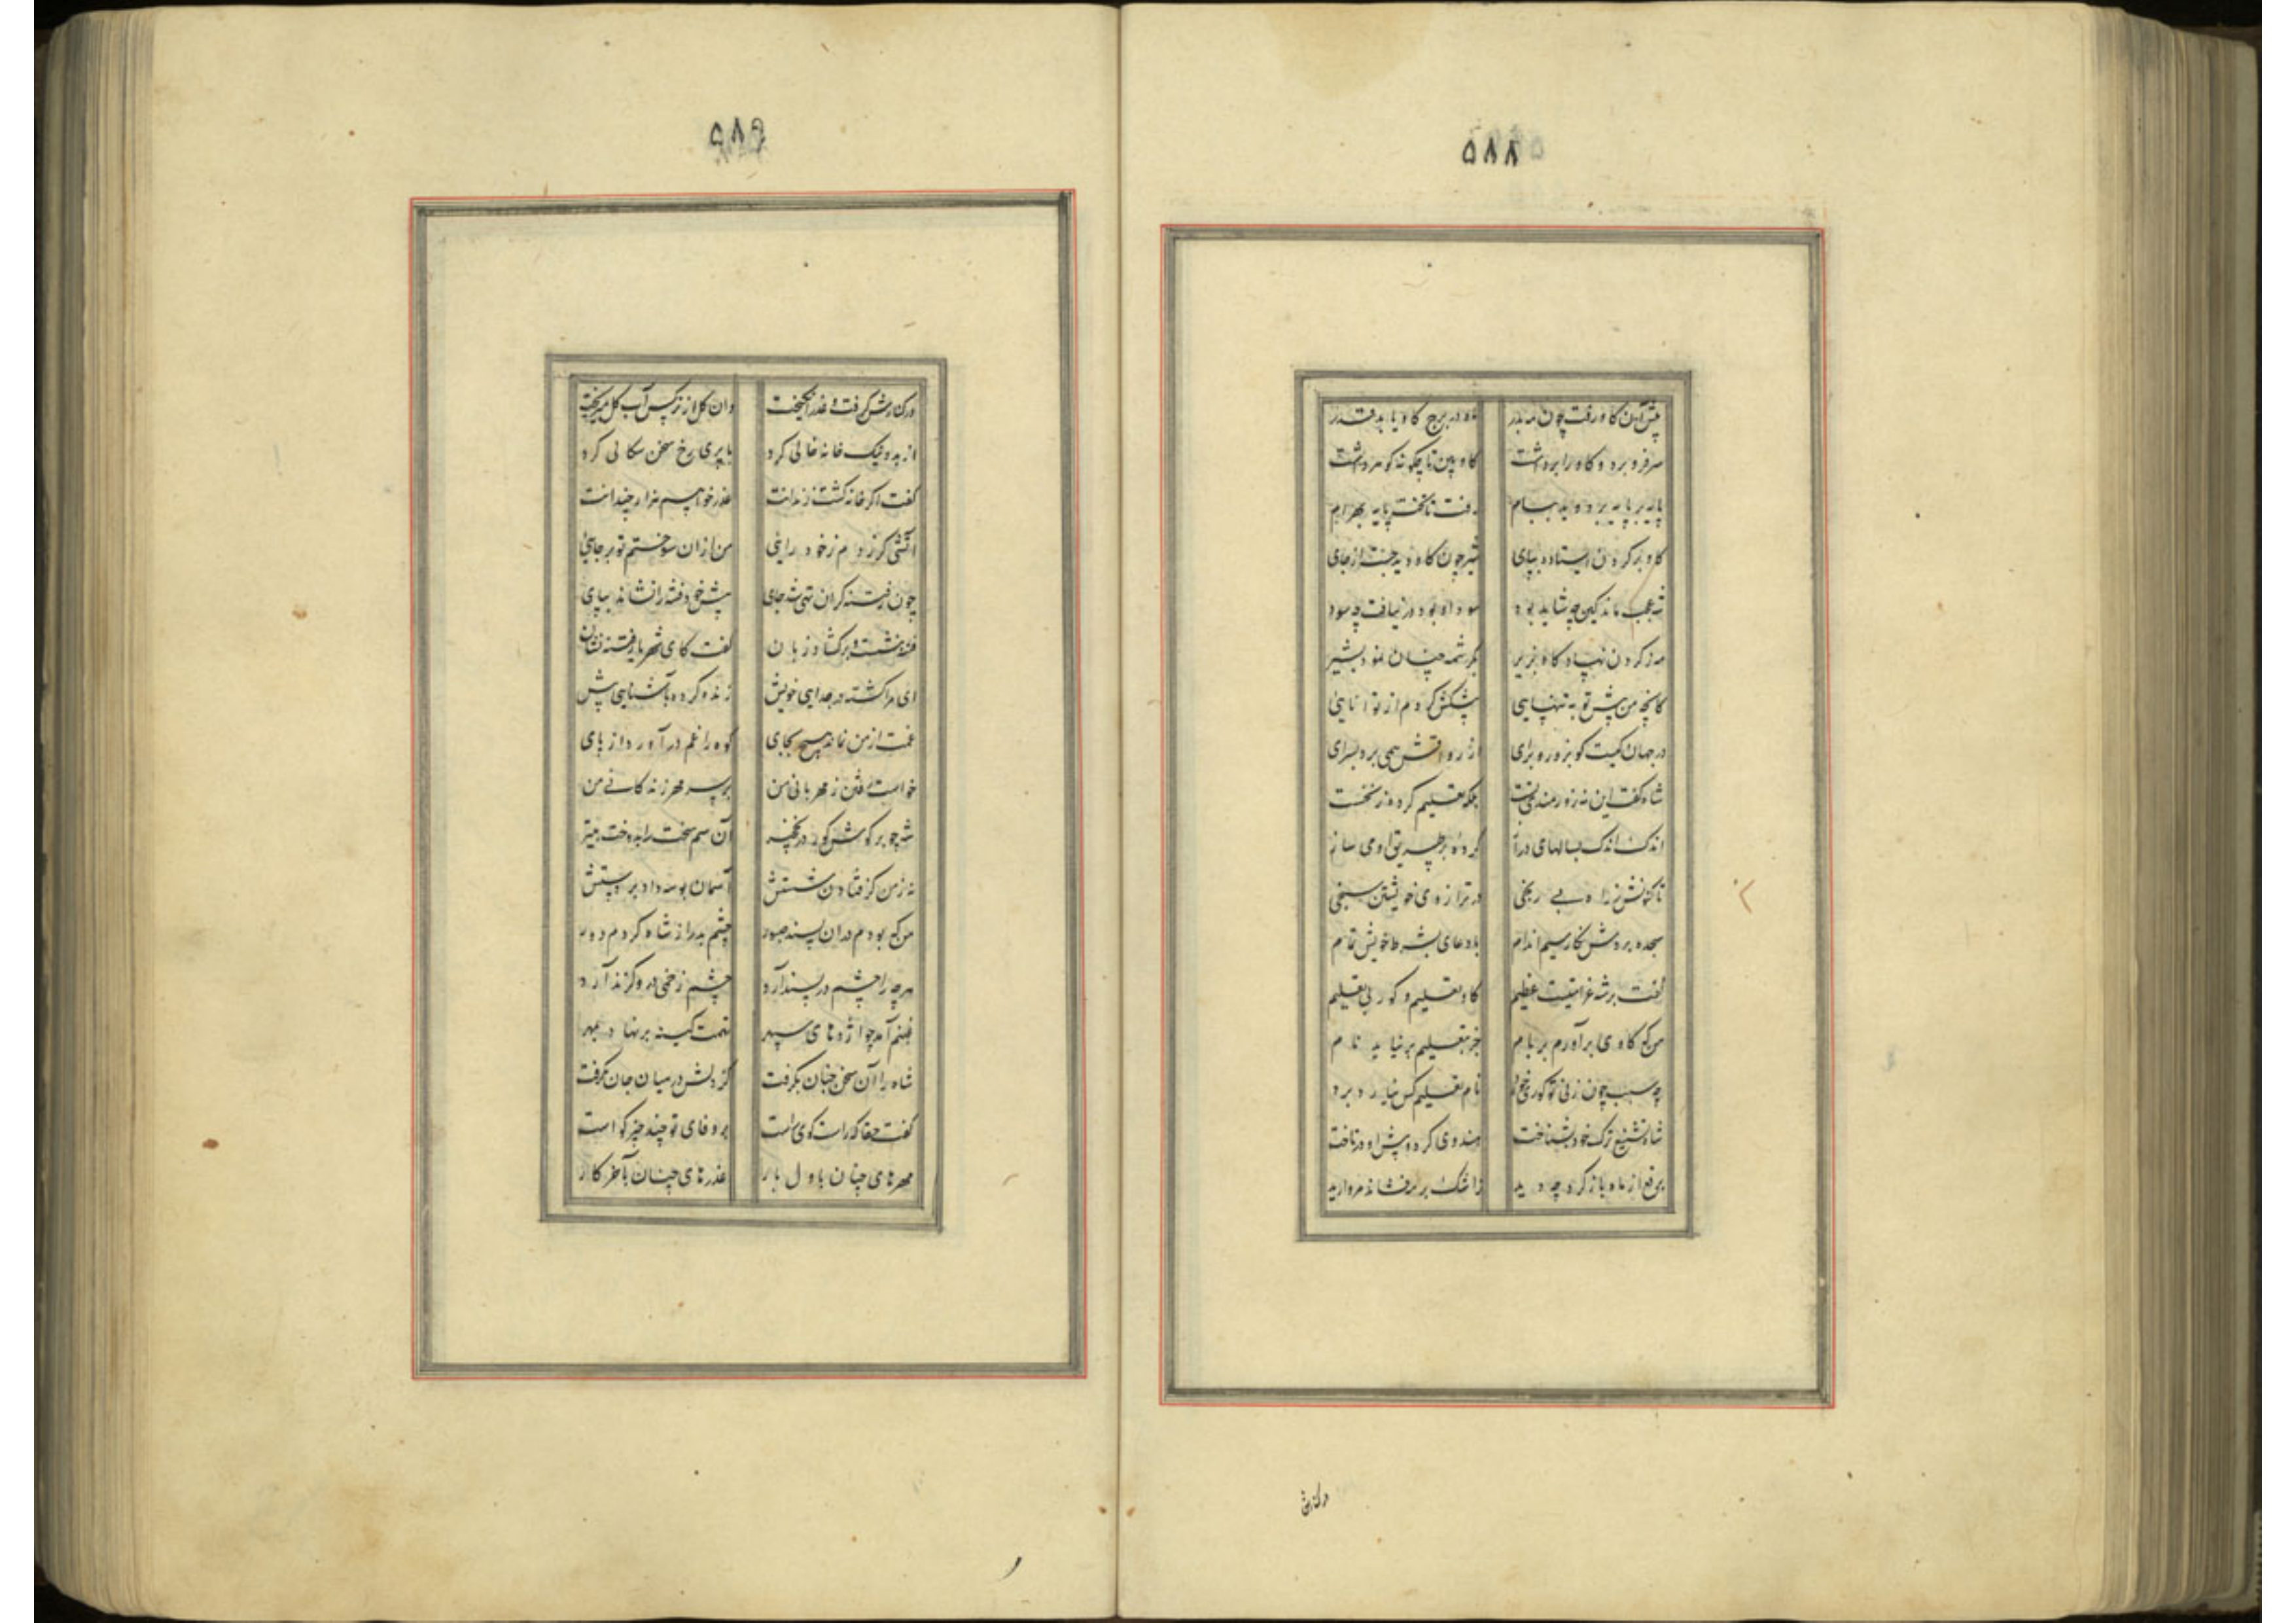 ۵۸۸
پیش آن گاو رفت چون مه بدر ماه در برج گاو یابد قدر
سر فرو برد و گاو را برداشت گاو بین تا چگونه گوهر داشت
پایه بر پایه بر دوید ببام رفت تا تخت پایه بهرام
گاو بر گردن ایستاده بپای شیر چون گاو دید جست از جای
شه عجب ماند کین چه شاید بود سود او بود در نیافت چه سود
مه ز گردن نهاد گاو بزیر بکرشمه چنان نمود بشیر
کانچه من پیش تو به تنهایی پیشکش کردم از توانایی
در جهان کیست کو بزور و برای از رواقش همی برد بسرای
شاه گفت این نه زورمندی تست بلکه تعلیم کرده ز نخست
اندک اندک بسالهای دراز کرده بر طریق او می ساز
تا کنونش ز راه بی رنجی در ترازوی خویشتن سنجی
سجده بردش نگار سیم اندام با دعای بشرط خویش تمام
گفت بر شه غرامتیست عظیم گاو تعلیم و گور بی تعلیم
من که گاوی برآورم بر بام جز بتعلیم بر نیاید نام
چه سبب چون زنی تو گوری خرد نام تعلیم کس نیارد برد
شاه تشنیع ترک خود بشناخت هندوی کرد و پیش او در تاخت
برقع از ماه باز کرد چو دید ز اشک بر بر فشاند مروارید
در کنارش
۵۸۹
در کنارش گرفت و عذر انگیخت وان گل از نرگس آب گل میریخت
از بد و نیک خانه خالی کرد با پری رخ سخن سگالی کرد
گفت اگر خانه گشت زندانت عذر خواهم هزار چندانت
آتشی گر زدم ز خود رایی من از آن سوختم تو بر جایی
چون ز فتنه گران تهی شد جای پیش خود فتنه را نشاند بپای
فتنه بنشست و برگشاد زبان گفت کای شهریار فتنه نشان
ای مرا کشته در جدایی خویش زنده کرده بآشنایی پیش
غمت از من نماند هیچ بجای کوه را غم درآورد از پای
خواست رفتن ز مهربانی من بر سر مهر زندگانی من
شه چو بر گوش گور در نخچیر آن سم سخت را بدوخت بتیر
نه زمین کز گشادن شستش آسمان بوسه داد بر دستش
من که بودم در آن پسند صبور چشم بد را ز شاه کردم دور
هر چه را چشم در پسند آرد چشم زخمی درو گزند آرد
غبنم آمد چو اژدهای سپهر تهمت کینه بر نهاد بمهر
شاه را آن سخن چنان بگرفت کز دلش در میان جان بگرفت
گفت حقا که راست گوی راست بر وفای تو چند چیز گواست
مهرهای چنان باول بار عذرهای چنان بآخر کار